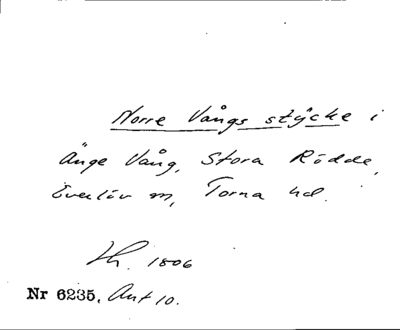 Norre Vångs stÿcke i
Änge Vång, Stora Rödde,
Everlöv sn, Torna hd.
Lh. 1806
Nr 6235, Ant 10.